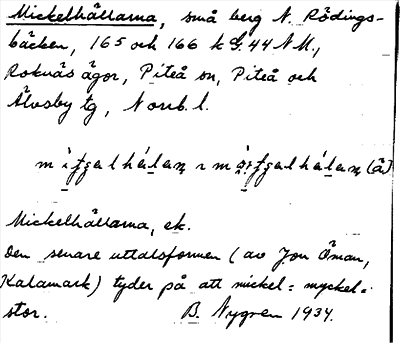 Mickelhällarna, små berg N. Rödings-
bäcken, 165 och 166 k G. 44 N M.,
Roknäs ägor, Piteå sn, Piteå och
Älvsby tg, Norrb. l.
Mickelhällarna, ek.
Den senare uttalsformen (av Jon Öman,
Kalamark) tyder på att mickel = myckel =
stor. B. Nygren 1934.